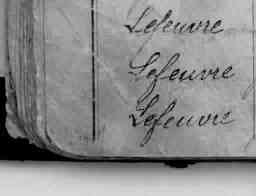 Lefeuvre
Lefeuvre
Lefeuvre